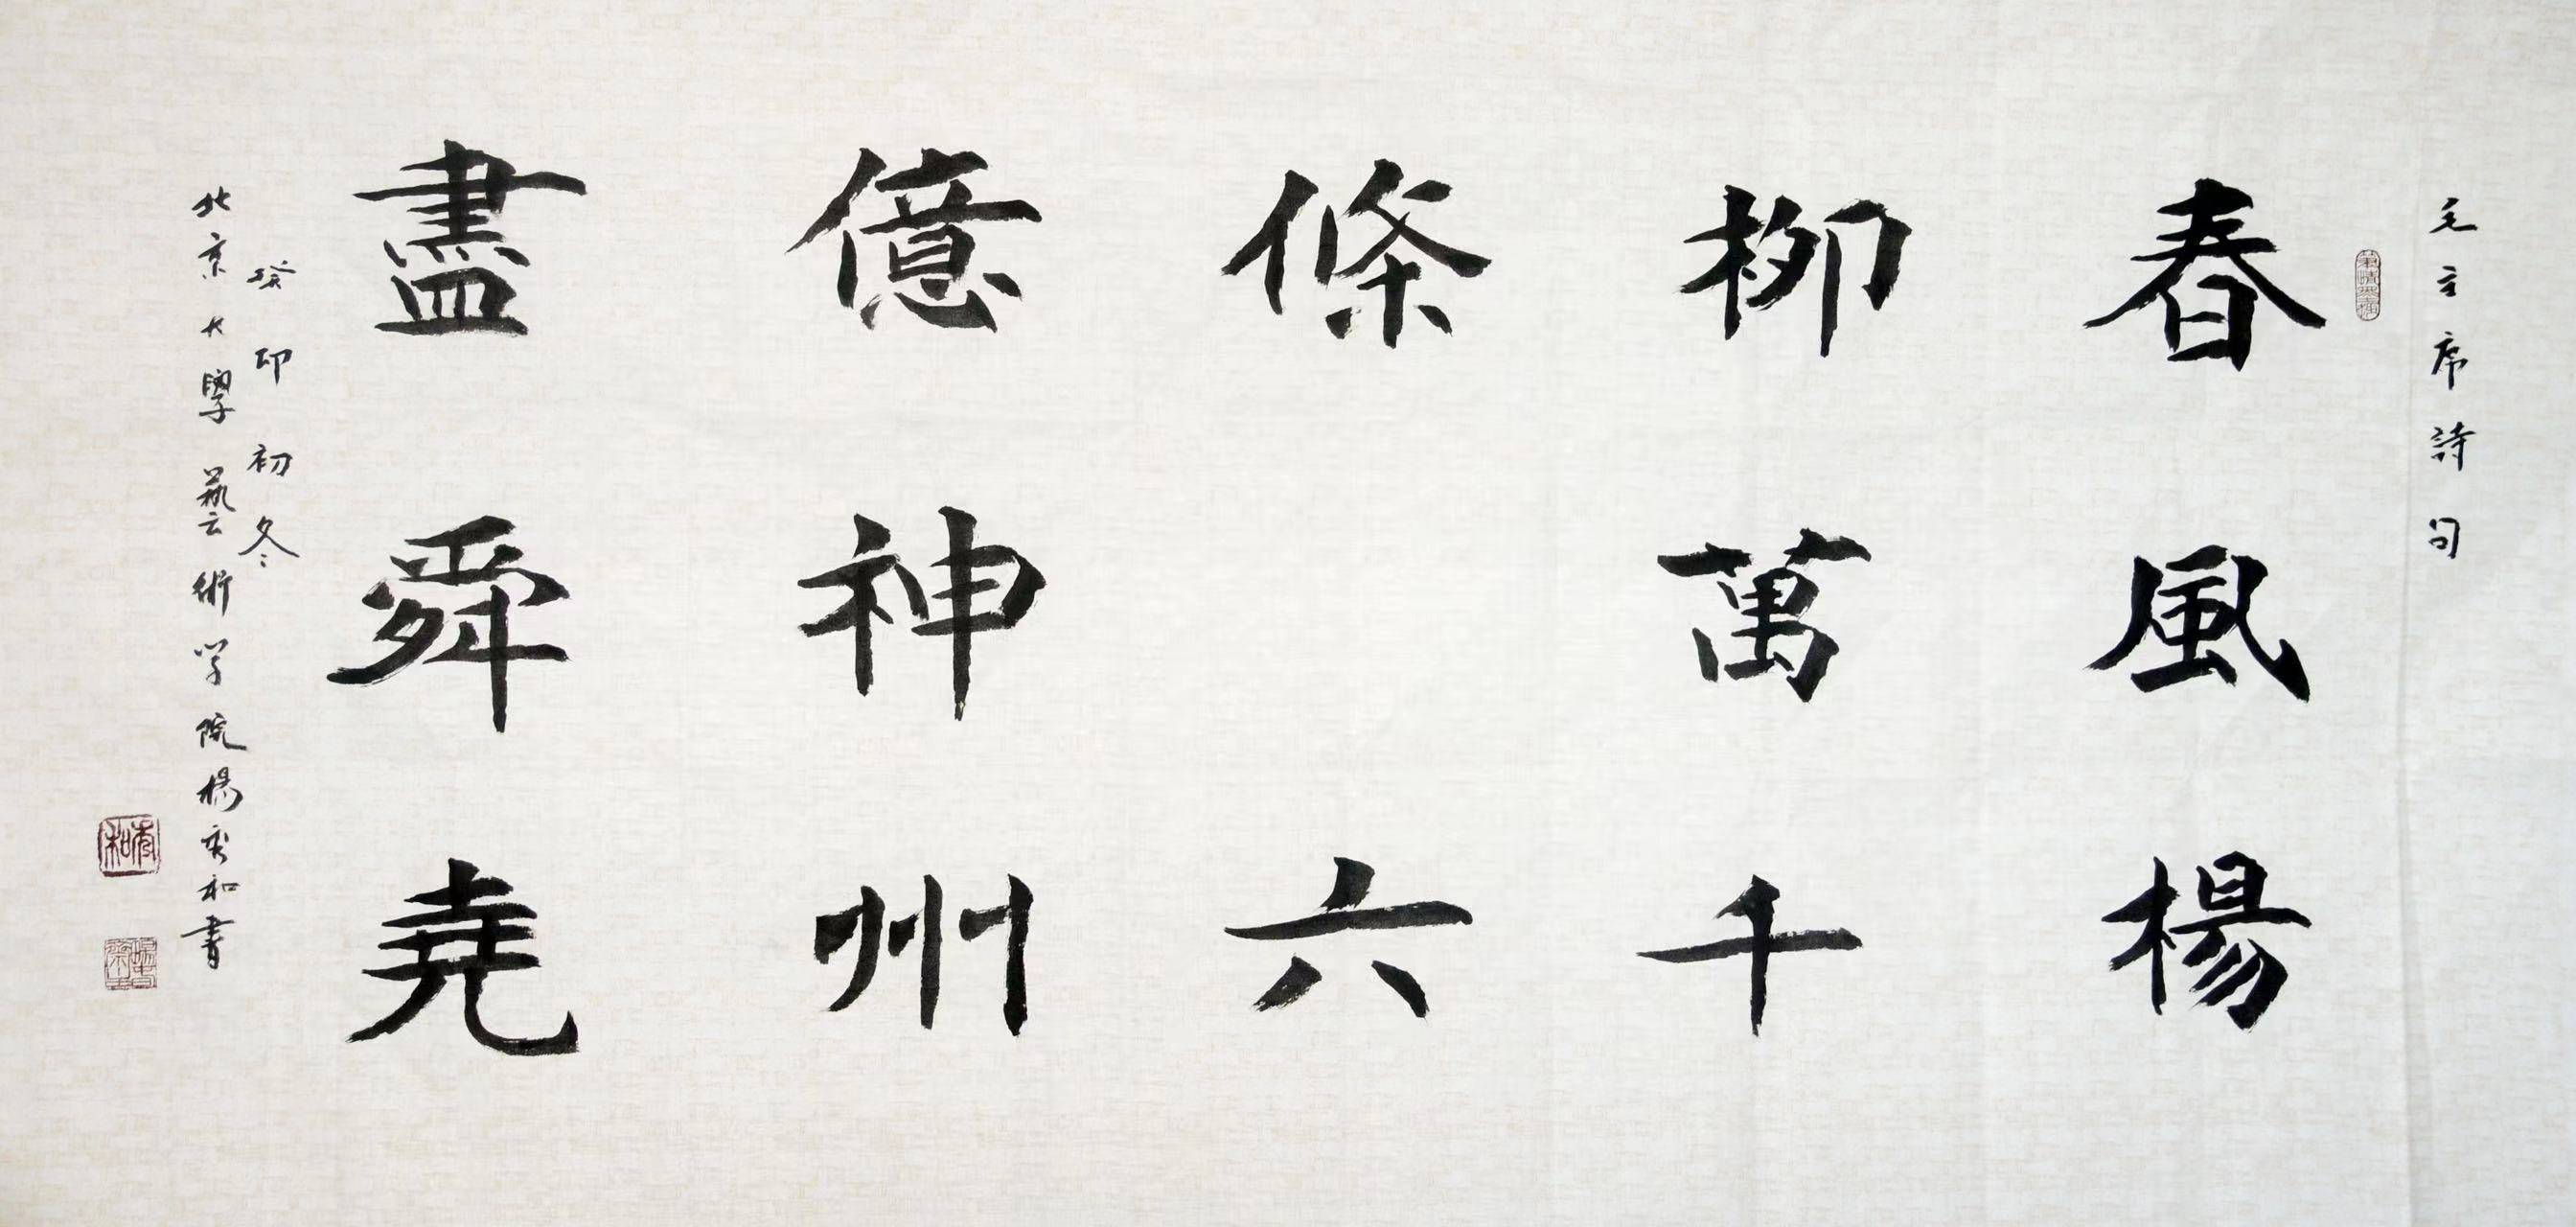 毛主席詩句
春風楊
柳萬千
條 六
億神州
盡舜堯
癸卯初冬
北京大學藝術学院楊秀和書